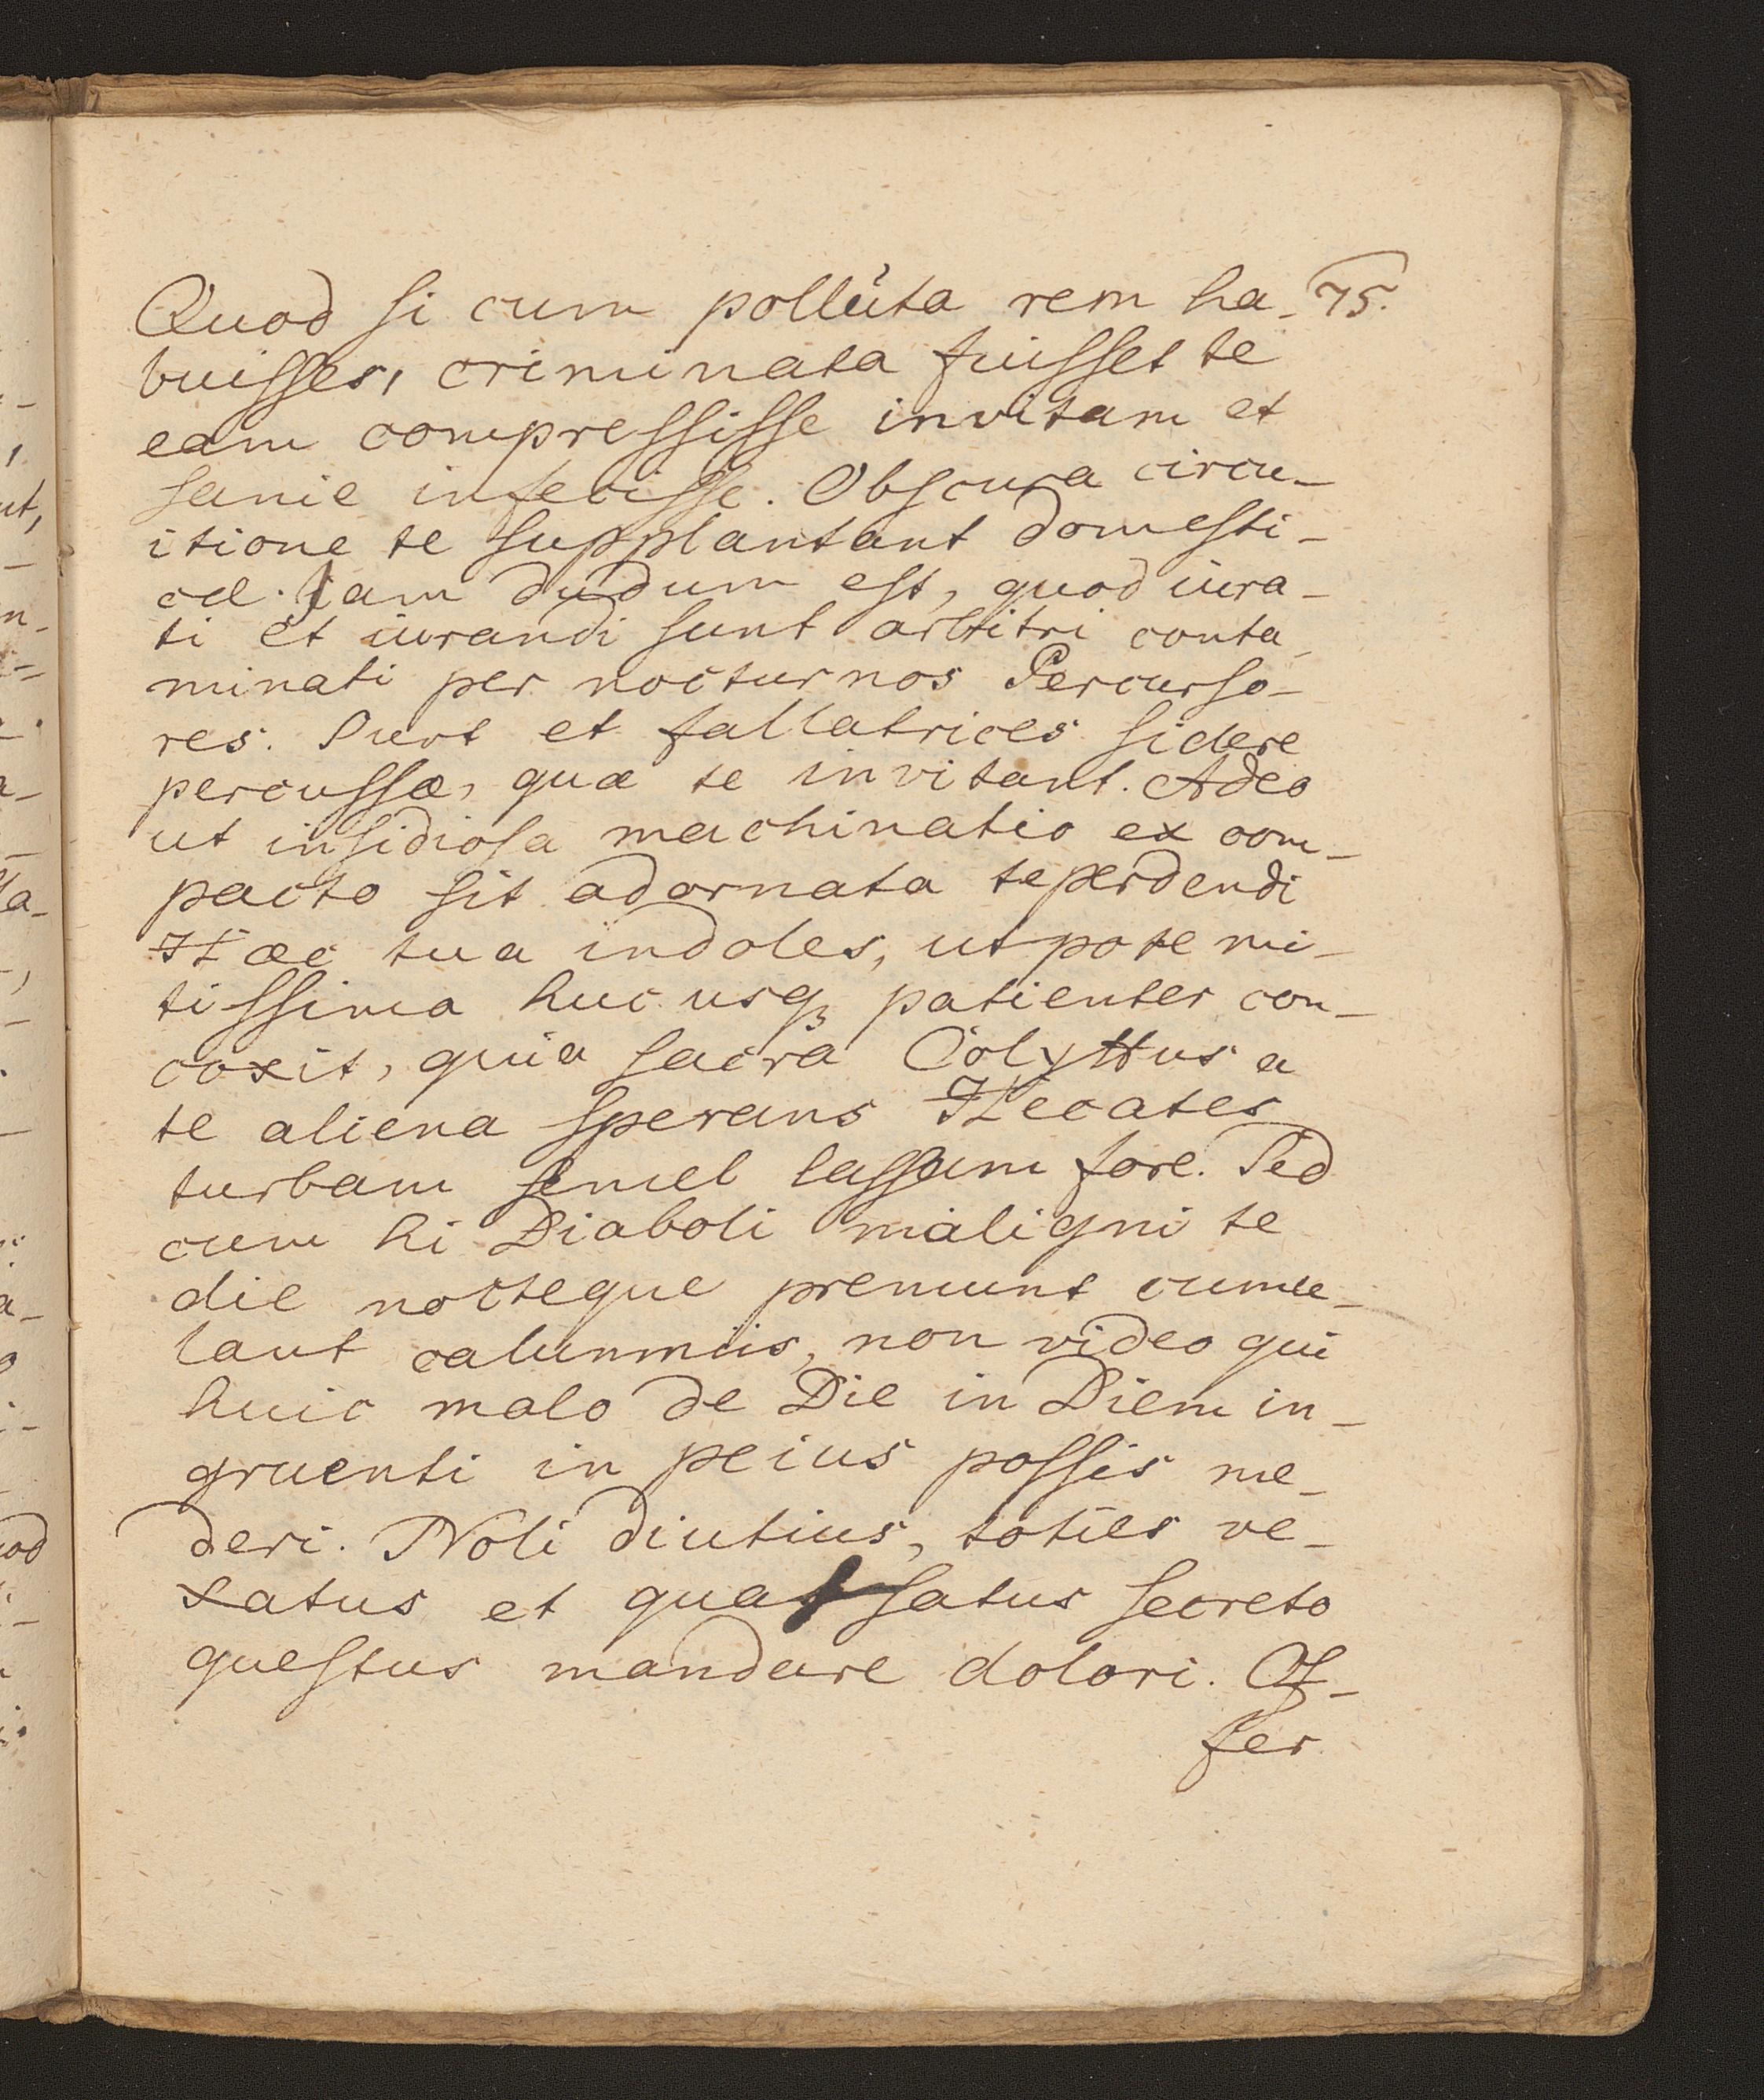 Quod si cum pollùta rem ha- 75.
buisses, criminata fuisset te
eam compressisse invitam et
sanie infecisse. Obscura circu-
itione te supplantant domesti-
cæ. Iam dudum est, quod iura-
ti et iurandi sunt arbitri conta-
minati per nocturnos Percusso-
res. Sunt et fallatrices sidere
percussæ, quæ te invitant. Adeo
ut insidiosa machinatio ex com-
pacto sit adornata te perdendi
Hæc tua indoles, utpote mi-
tissima huc usq; patienter con-
coxit, quia sacra Colyttus a
te aliena sperans Hecates
turbam semel lassam fore. Sed
cum hi Diaboli maligni te
die nocteque premunt cumu-
lant calumniis, non video qui
huic malo de Die in Diem in-
gruenti in peius possis me-
deri. Noli diutius, toties ve-
xatus et quassatus secreto
questus mandare dolori. Of-
fer